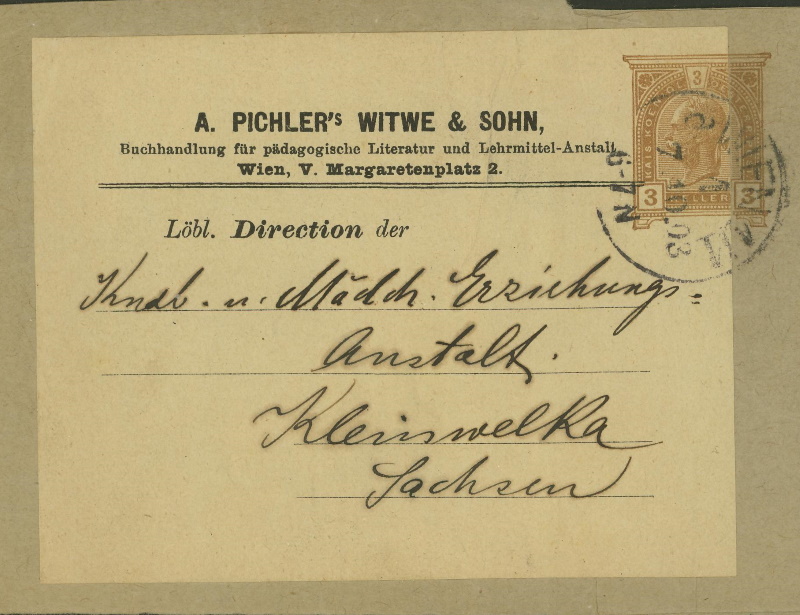 A. PICHLER's WITWE & SOHN,
Buchhandlung für pädagogische Literatur und Lehrmittel-Anstalt
Wien, V. Margaretenplatz 2.
Löbl. Direction der
Knab. u. Mädch. Erziehungs=
Anstalt.
Kleinwelka
Sachsen
3
3 HELLER 3
6-7 N